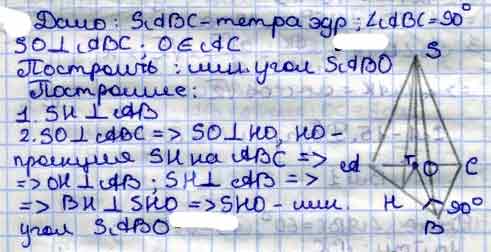 Дано: SABC-тетраэдр; ∠ABC=90°
SO⊥ABC; O∈AC
Построить: лин. угол SABO
Построение:
1. SH⊥AB
2. SO⊥ABC => SO⊥HO, HO-
проекция SH на ABC =>
=> OH⊥AB; SH⊥AB =>
=> BH⊥SHO => SHO- лин.
угол SABO
S
A
O
C
H
90°
B